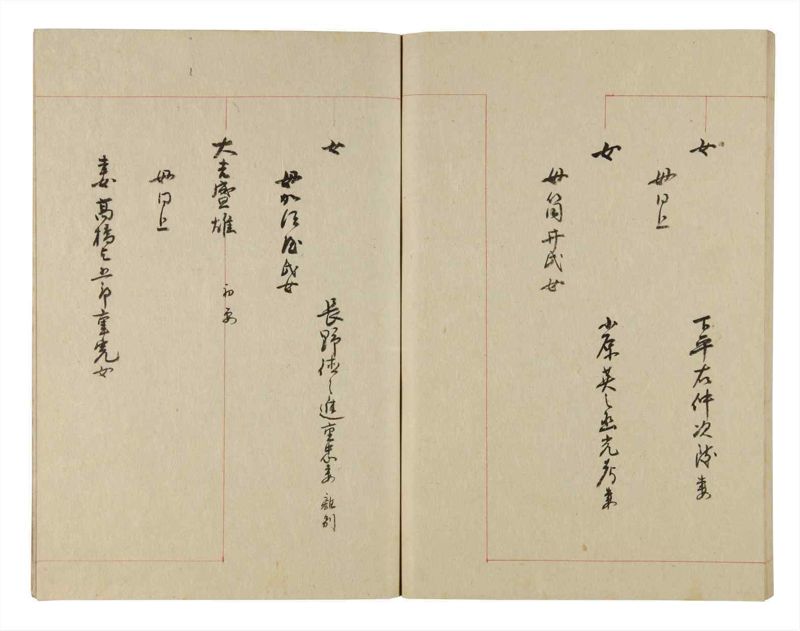 女
下平右仲次陳妻
母同上
女
小原英之丞光彦妻
母筒井氏女
女
長野徳之進重忠妻 離別
母加須屋氏女
大吉盛雄
初要
母同上
妻高橋与五郎重光女